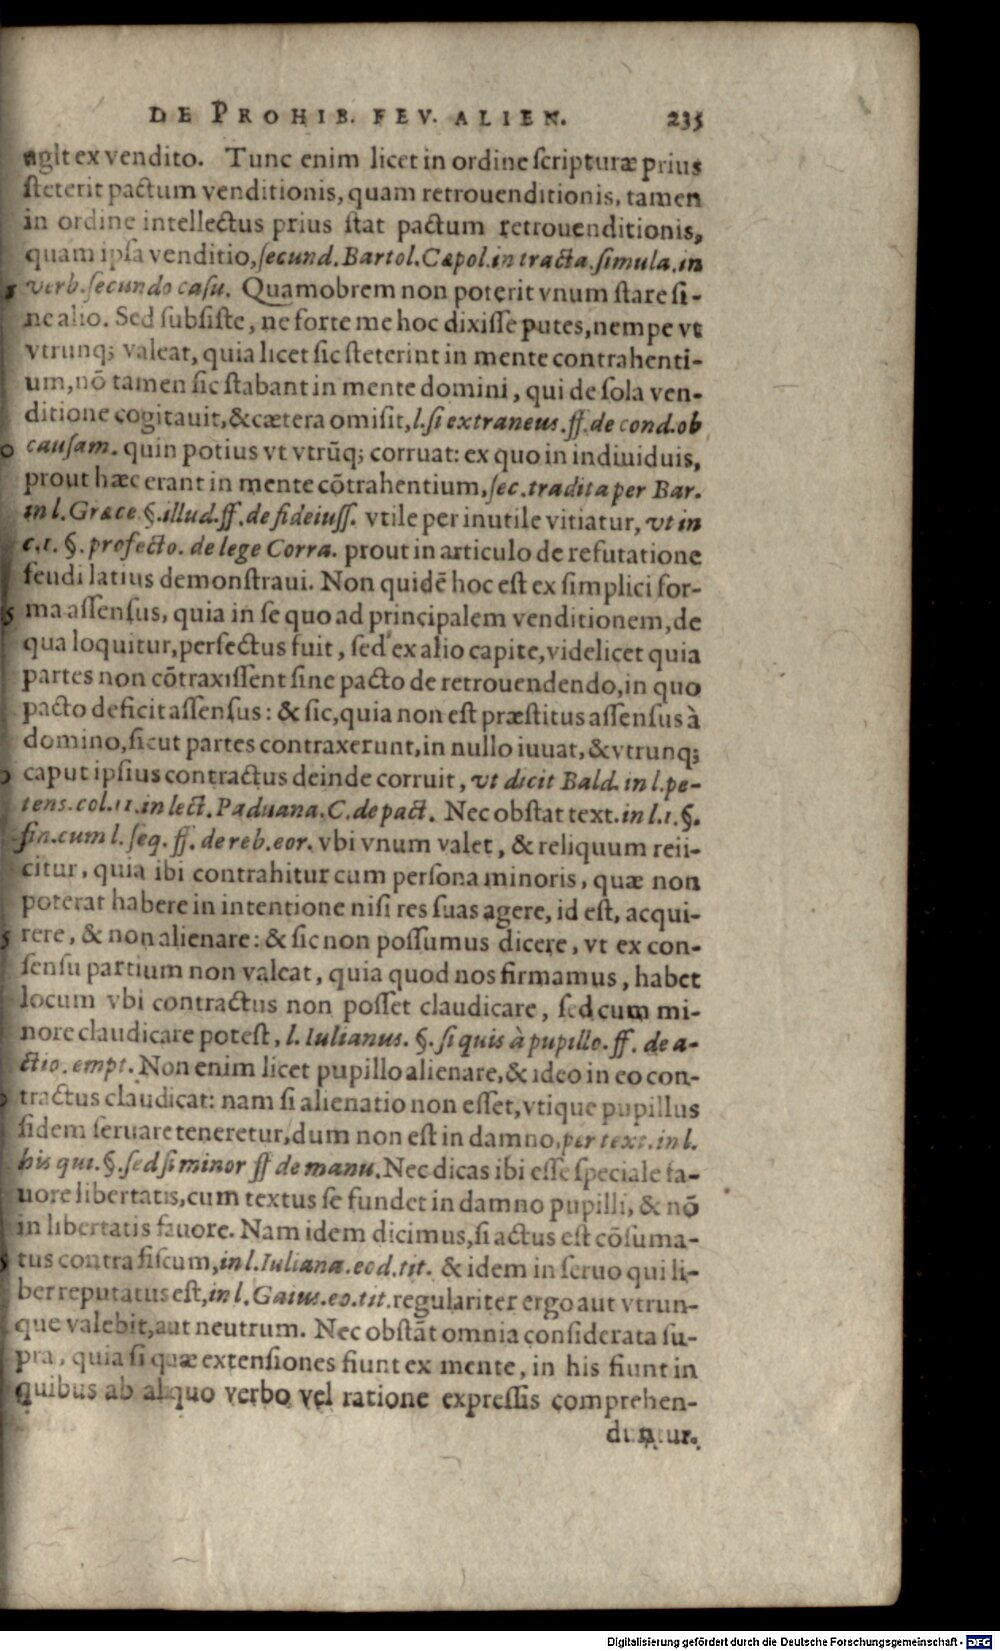 DE PROHIB. FEV. ALIEN. 235
agit ex vendito. Tunc enim licet in ordine scripturæ prius
steterit pactum venditionis, quam retrouenditionis, tamen
in ordine intellectus prius stat pactum retrouenditionis,
quam ipsa venditio, secund. Bartol. Cæpol. in tracta. simula. in
verb. secundo casu. Quamobrem non poterit vnum stare si-
ne alio. Sed subsiste, ne forte me hoc dixisse putes, nempe vt
vtrunq; valeat, quia licet sic steterint in mente contrahenti-
um, nō tamen sic stabant in mente domini, qui de sola ven-
ditione cogitauit, & cætera omisit, l. si extraneus. ff. de cond. ob
causam. quin potius vt vtrūq; corruat: ex quo in indiuiduis,
prout hæc erant in mente cōtrahentium, sec. tradita per Bar.
in l. Græce §. illud. ff. de fideiuss. vtile per inutile vitiatur, vt in
c. 1. §. profecto. de lege Corra. prout in articulo de refutatione
feudi latius demonstraui. Non quidē hoc est ex simplici for-
ma assensus, quia in se quo ad principalem venditionem, de
qua loquitur, perfectus fuit, sed ex alio capite, videlicet quia
partes non cōtraxissent sine pacto de retrouendendo, in quo
pacto deficit assensus: & sic, quia non est præstitus assensus à
domino, sicut partes contraxerunt, in nullo iuuat, & vtrunq;
caput ipsius contractus deinde corruit, vt dicit Bald. in l. pe-
tens. col. 11. in lect. Paduana. C. de pact. Nec obstat text. in l. 1. §.
fin. cum l. seq. ff. de reb. eor. vbi vnum valet, & reliquum reii-
citur, quia ibi contrahitur cum persona minoris, quæ non
poterat habere in intentione nisi res suas agere, id est, acqui-
5 rere, & non alienare: & sic non possumus dicere, vt ex con-
sensu partium non valeat, quia quod nos firmamus, habet
locum vbi contractus non posset claudicare, sed cum mi-
nore claudicare potest, l. Iulianus. §. si quis à pupillo. ff. de a-
ctio. empt. Non enim licet pupillo alienare, & ideo in eo con-
tractus claudicat: nam si alienatio non esset, vtique pupillus
fidem seruare teneretur, dum non est in damno, per text. in l.
his qui. §. sed si minor ff de manu. Nec dicas ibi esse speciale fa-
uore libertatis, cum textus se fundet in damno pupilli, & nō
in libertatis fauore. Nam idem dicimus, si actus est cōsuma-
tus contra fiscum, in l. Iuliana. eod. tit. & idem in seruo qui li-
ber reputatus est, in l. Gaius. eo. tit. regulariter ergo aut vtrun-
que valebit, aut neutrum. Nec obstāt omnia considerata su-
pra, quia si quæ extensiones fiunt ex mente, in his fiunt in
quibus ab aliquo verbo vel ratione expressis comprehen-
duntur.
Digitalisierung gefördert durch die Deutsche Forschungsgemeinschaft - DFG